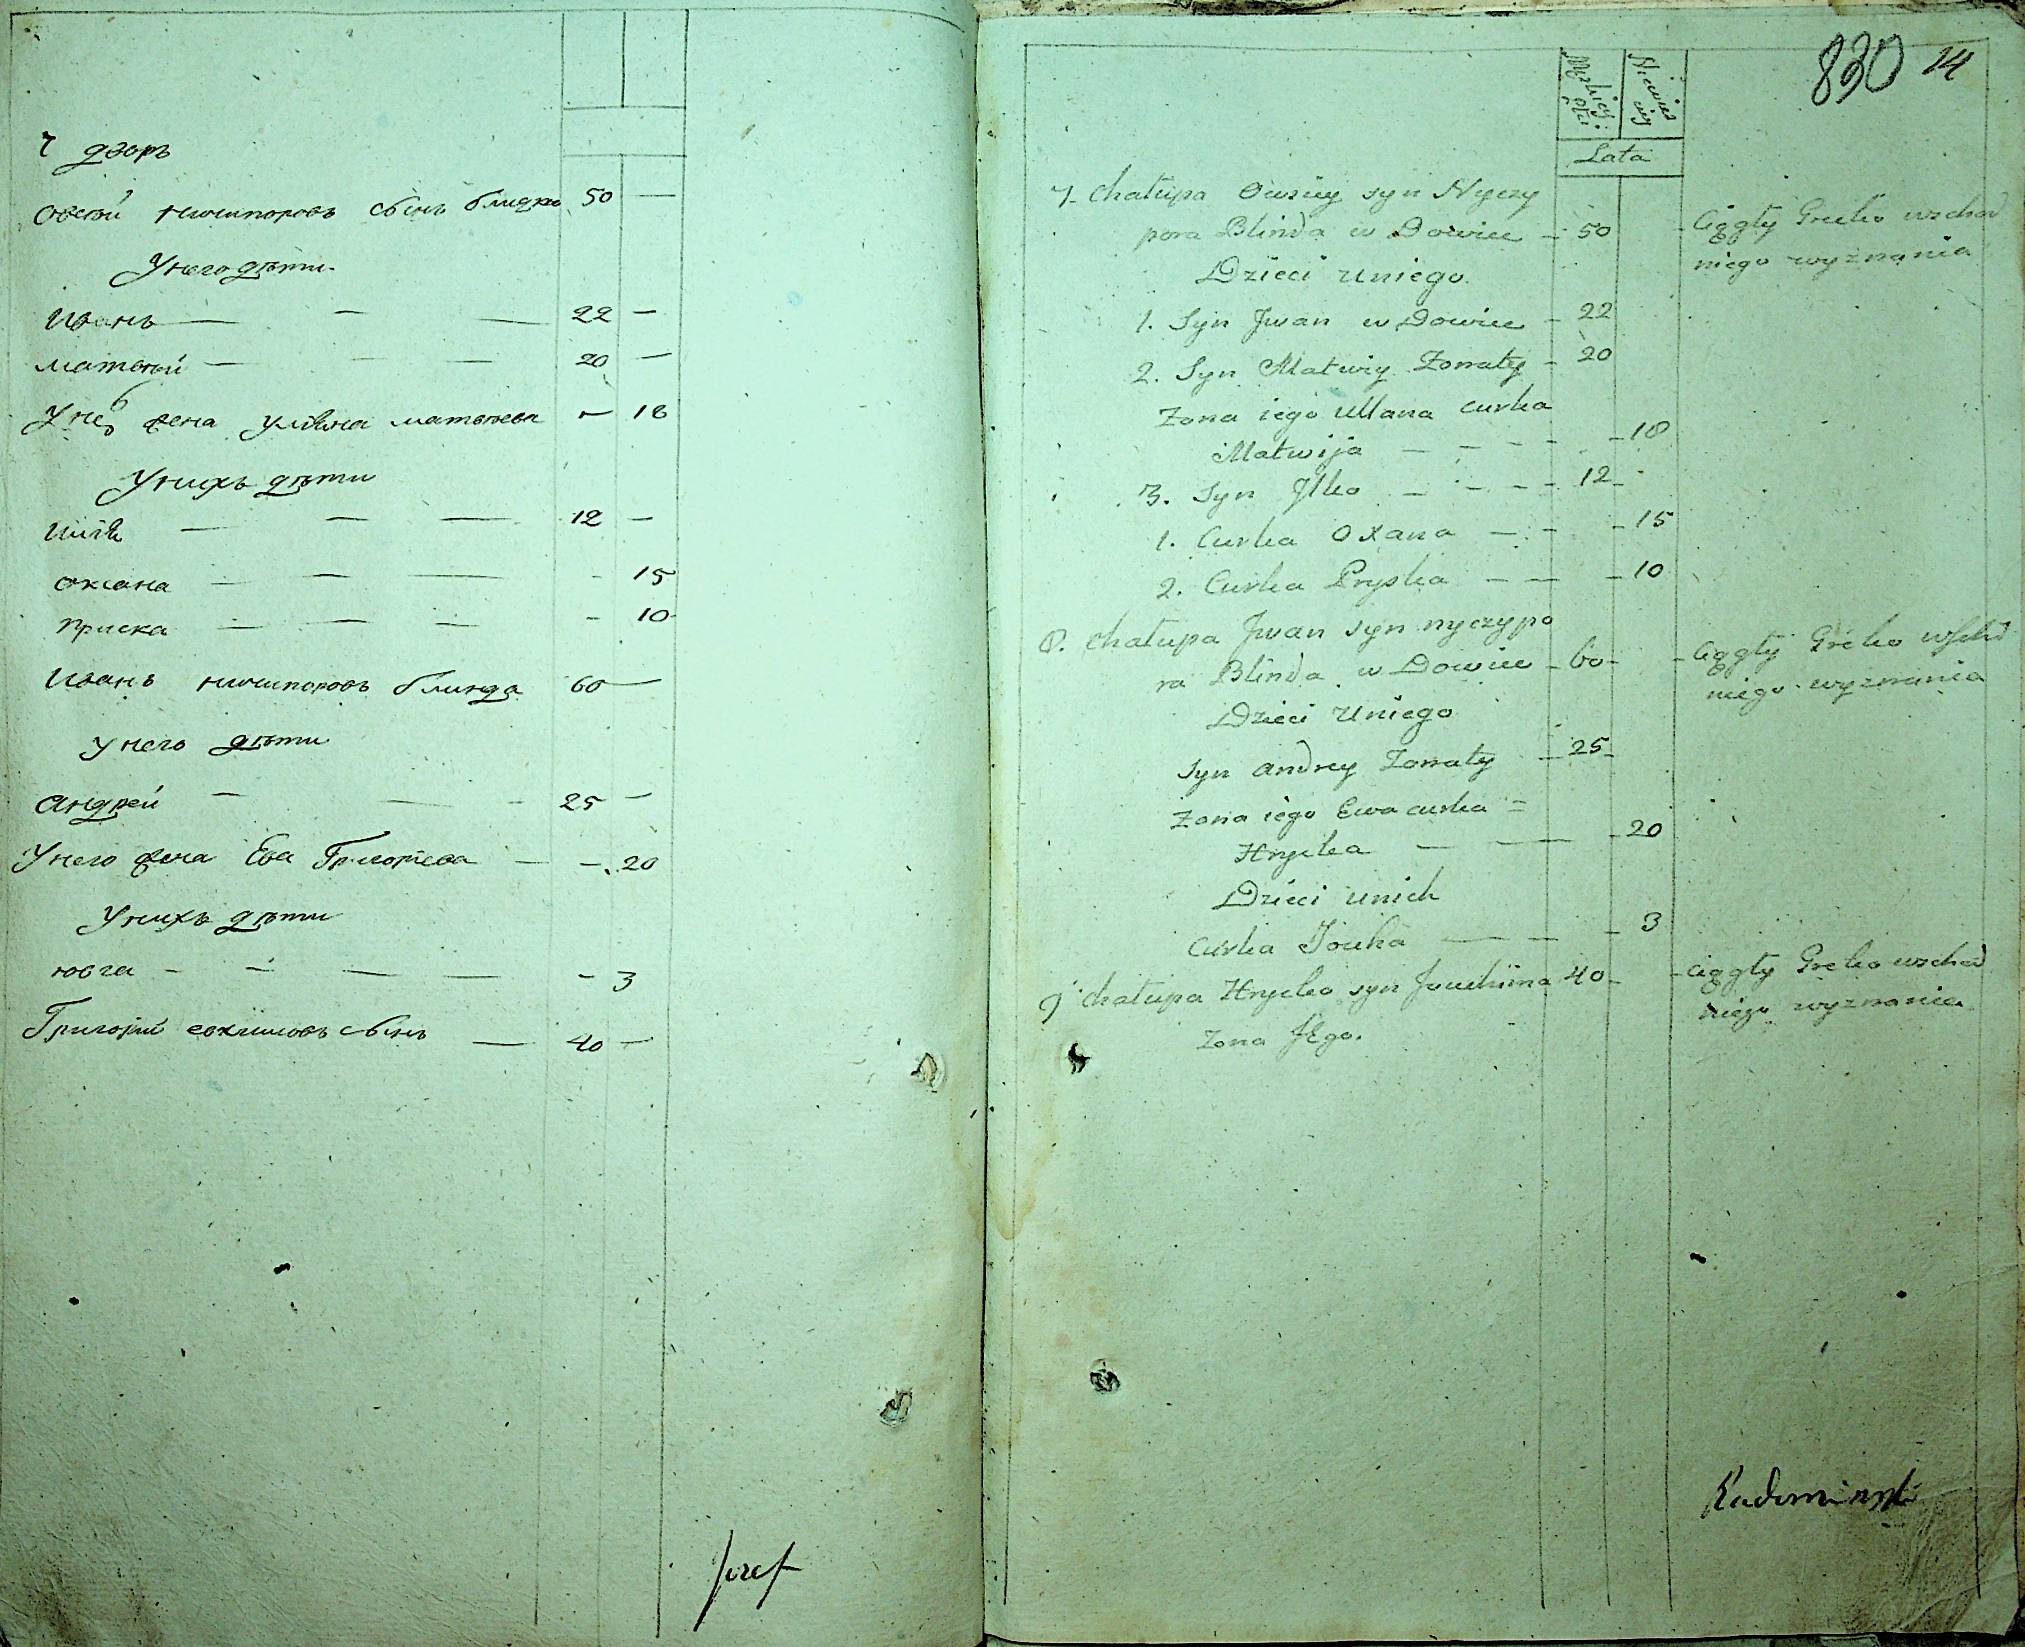 7 дворъ
Овсѣй Ничипоровъ сынъ блинда 50 —
У него дѣти
Иванъ — — — 22 —
матвѣй — — — 20 —
У не го жена Улияна матвѣева — 18
У нихъ дѣти
Илія — — — 12 —
оксана — — — - 15
приска — — — - 10
Иванъ ничипоровъ блинда 60 —
У него дѣти
Андрей — — - 25 —
У него жена Ева Григорьева — — 20
У нихъ дѣти
ювга - — — — - 3
Григорій евхимовъ сынъ — 40 —
Jozef
830 14
Męzkiej płci
Lata
7. Chałupa Owsiey syn Nyczy
pora Blinda w Dowiec - 50 - Ciągły Greko wschod
niego wyznania
Dzieci u niego
1. Syn Jwan w Dowiec - 22
2. Syn Matwiy Żonaty - 20
Żona iego Ullana curka
Matwija — - - - - 18
3. Syn Jlko — - - - 12
1. Curka Oxana — - - - 15
2. Curka Pryska — — - 10
8. Chałupa Jwan syn nyczypo
ra Blinda w Dowiec - 60 - - Ciągły Greko wschd
niego wyznania
Dzieci U niego
Syn andrey Żonaty - 25
Żona iego Ewa curka =
Hrycka — — - 20
Dzieci u nich
Curka Jouha — — - 3
9 Chałupa Hrycko syn Jeuchima 40 - - ciągły Greko wschod
niego wyznania
Żona JEgo.
Radominski